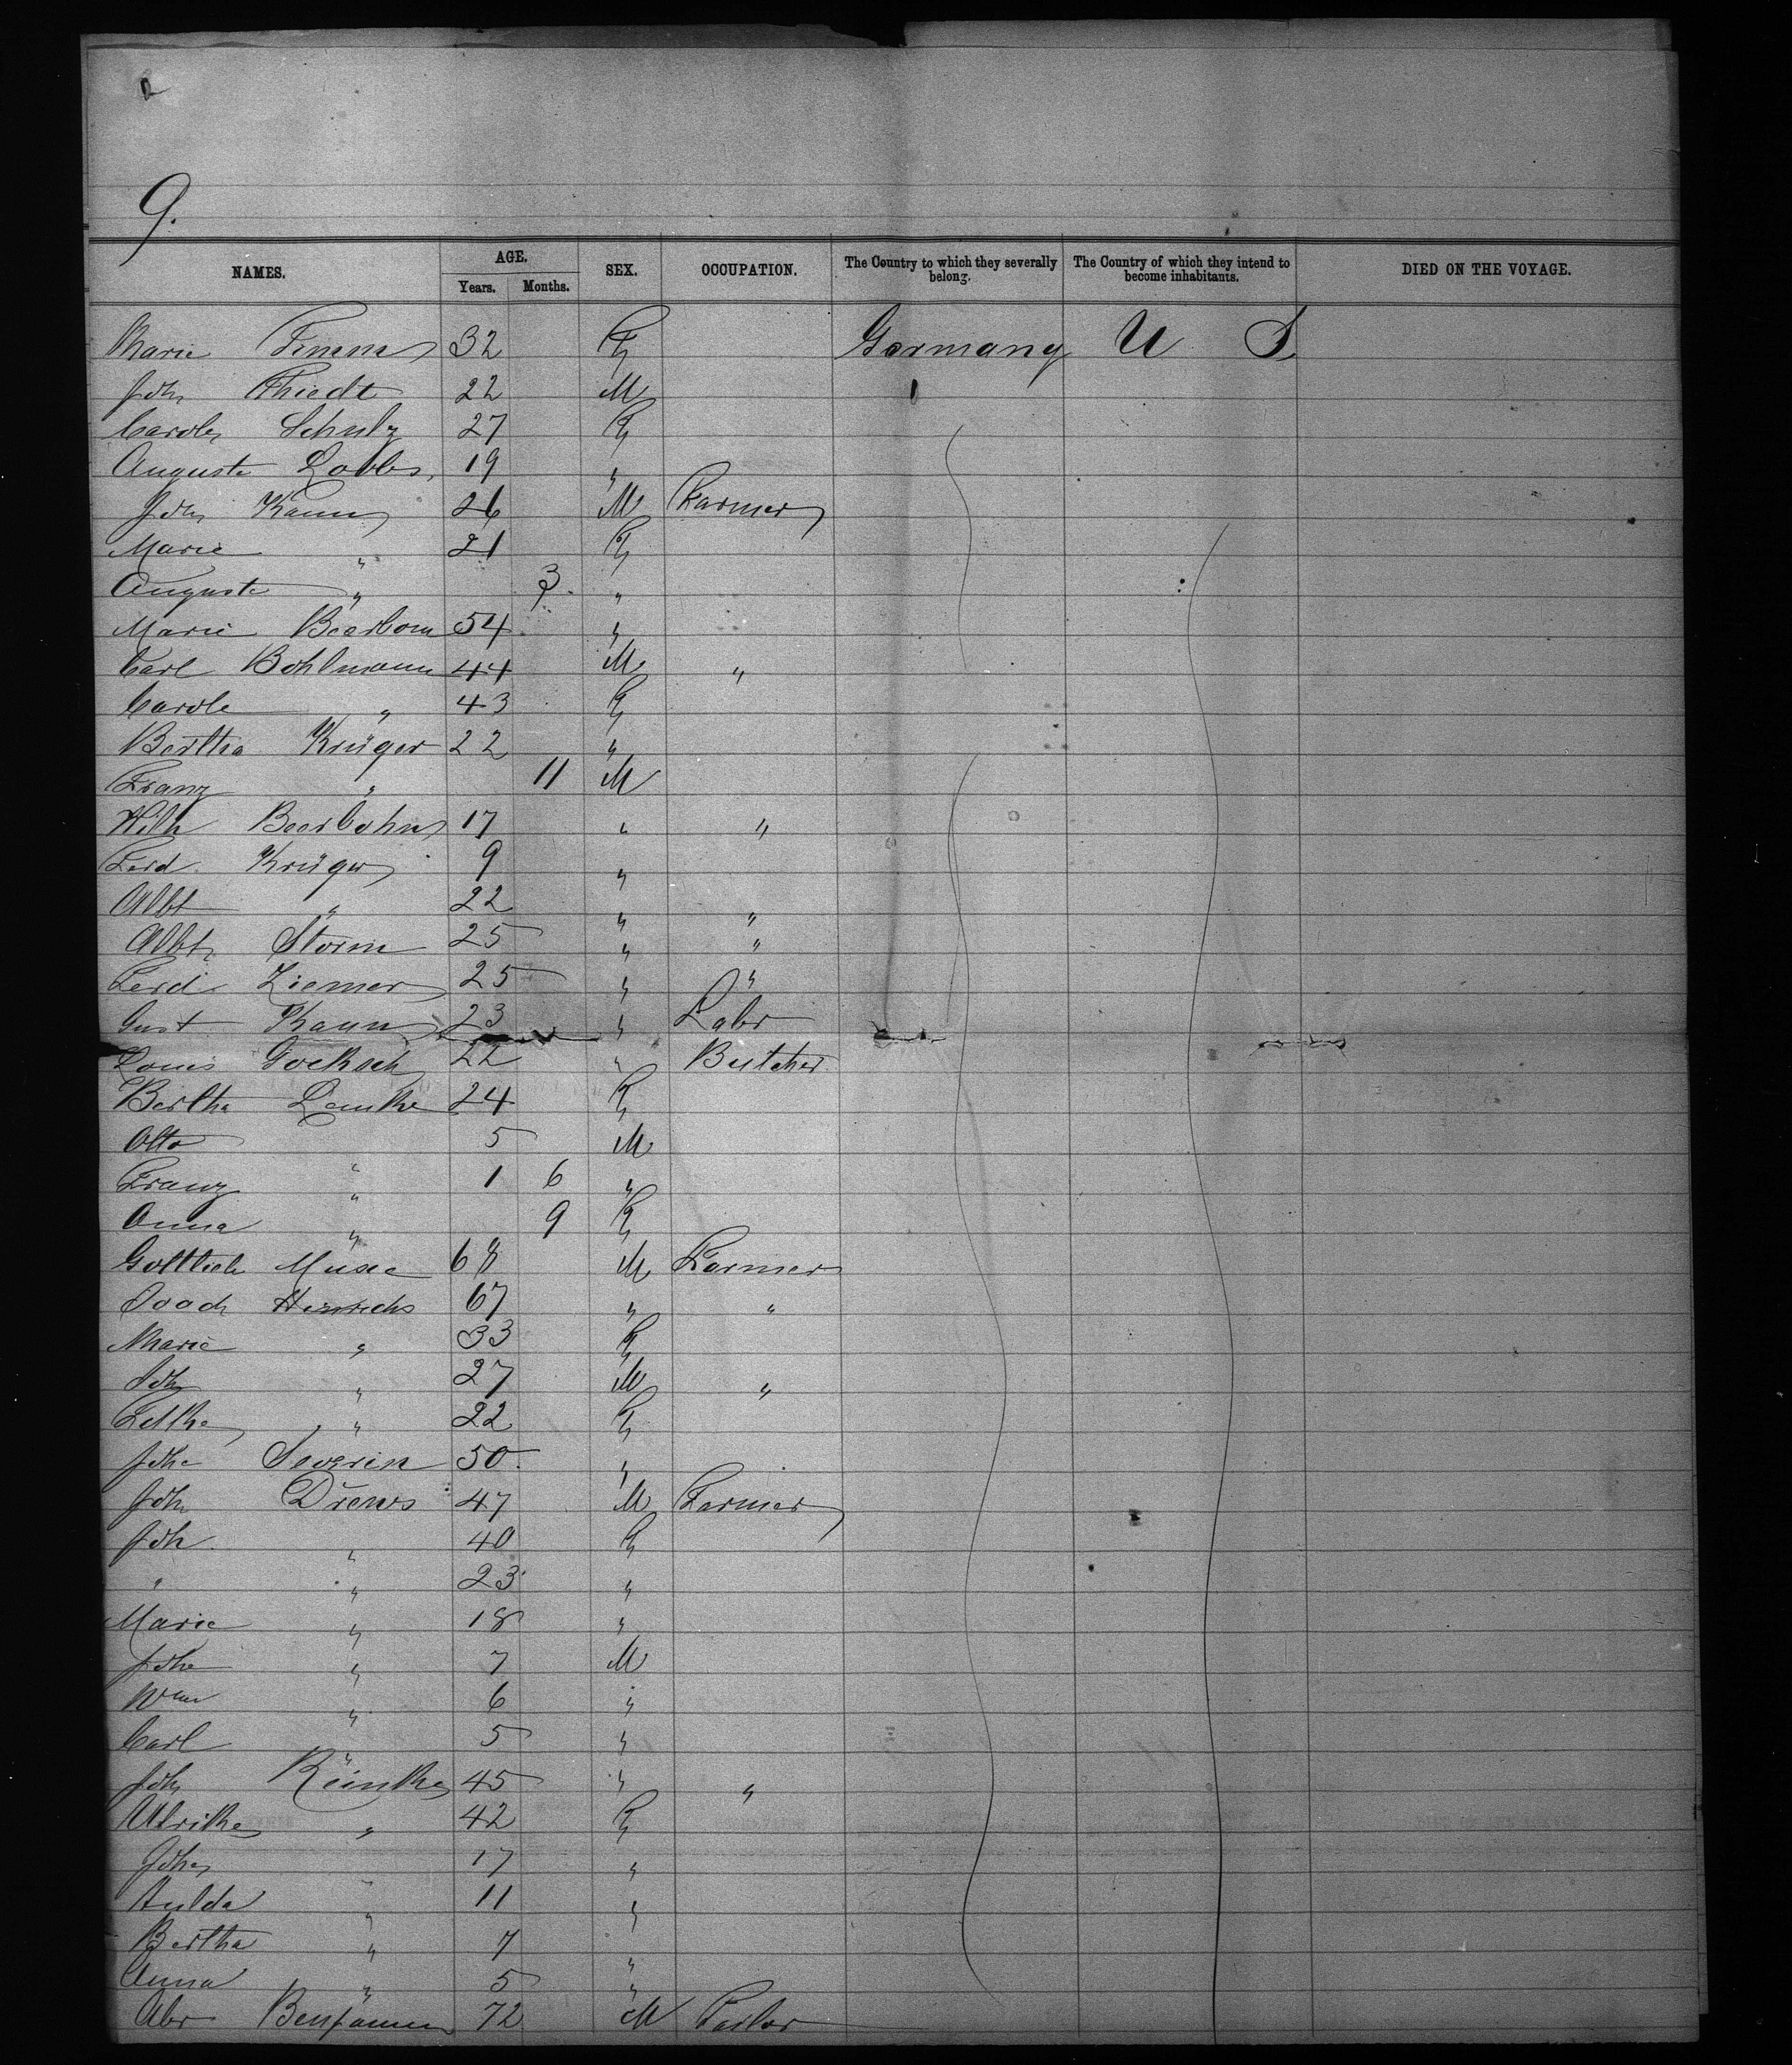 9.
NAMES. AGE. Years. Months. SEX. OCCUPATION. The Country to which they severally belong. The Country of which they intend to become inhabitants. DIED ON THE VOYAGE.
Marie 32 F Germany U S
Joh Thiedt 22 M
Carole Schulz 27 F
Auguste 19 "
Joh Kaun 26 M Farmer
Marie " 21 F
Auguste " 3 "
Marie Beerbom 54 "
Carl Bohlmann 44 M "
Carole " 43 F
Bertha Krüger 22 "
Franz " 11 M
Wilh Beerbohm 17 " "
Ferd. Krüger 9 "
Albt " 22 " "
Albt Storm 25 " "
Ferd. Ziemer 25 " "
Gust Kaun 23 " Labr
Louis 22 " Butcher
Bertha Lemke 24 F
Otto " 5 M
Franz " 1 6 "
Anna " 9 F
Gottlieb 68 M Farmer
Joach Hinrichs 67 " "
Marie " 33 F
Joh " 27 M "
" 22 F
Johe Severin 50 "
Joh Drews 47 M Farmer
Joh " 40 F
" " 23 "
Marie " 18 "
Johe " 7 M
Wm " 6 "
Carl " 5 "
Joh Reinke 45 " "
Ulrike " 42 F
Johe " 17 "
Hulda " 11 "
Bertha " 7 "
Anna " 5 "
Abr Benjamin 72 M Tailor